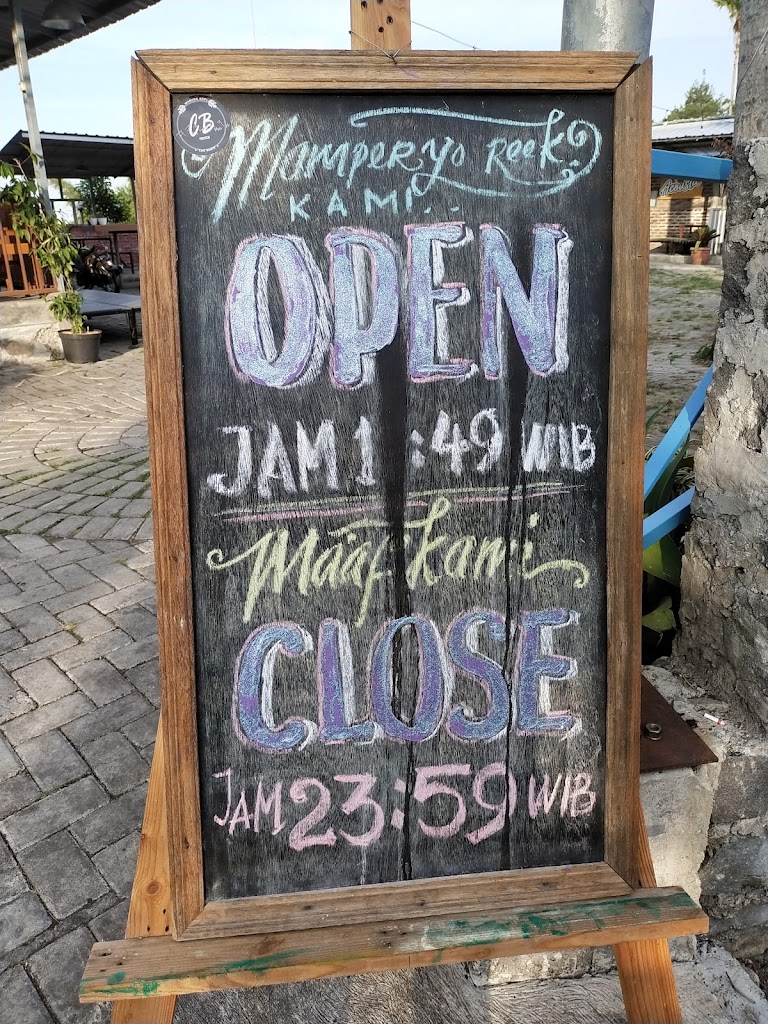 C.B.
Mamperyo Reek
KAMI..
OPEN
JAM 1 :49 WIB
Maaf kami
CLOSE
JAM 23:59 WIB